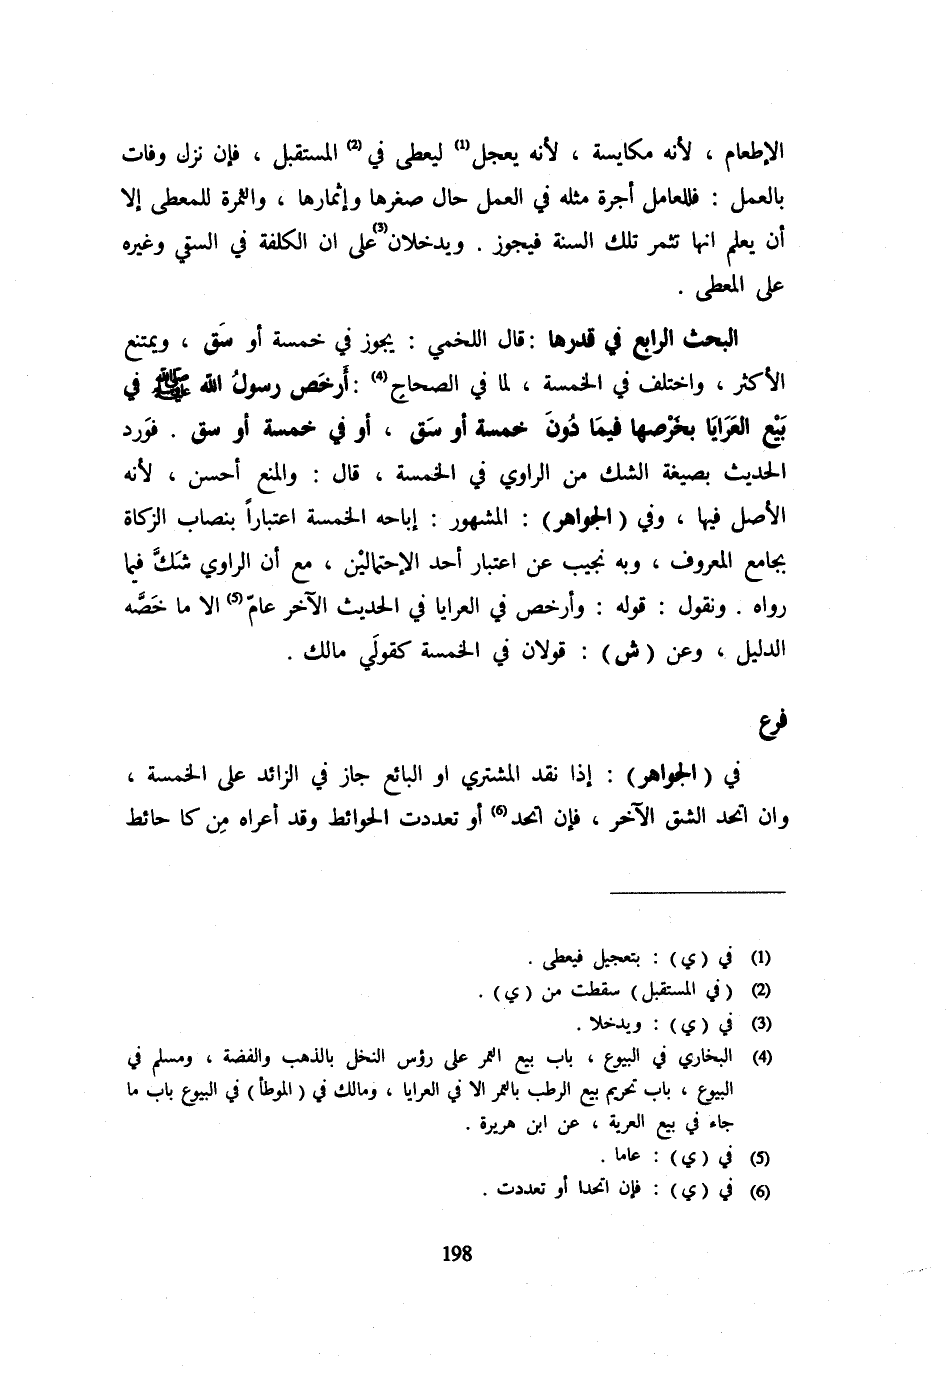 الإطعام ، لأنه مكايسة ، لأنه يعجل(1) ليعطى في(2) المستقبل ، فإن نزل وفات
بالعمل : فللعامل أجرة مثله في العمل حال صغرها وإثمارها ، والثمرة للمعطى إلا
أن يعلم انها تثمر تلك السنة فيجوز . ويدخلان(3) على ان الكلفة في السقي وغيره
على المعطى .
البحث الرابع في قدرها : قال اللخمي : يجوز في خمسة أو سَق ، ويمتنع
الأكثر ، واختلف في الخمسة ، لما في الصحاح(4) : أَرخَص رسولُ الله ﷺ في
بَيْع العَرَايَا بخَرْصها فيمَا دُونَ خمسة أو سَق ، أو في خمسة أو سق . فوَرد
الحديث بصيغة الشك من الراوي في الخمسة ، قال : والمنع أحسن ، لأنه
الأصل فيها ، وفي ( الجواهر ) : المشهور : إباحه الخمسة اعتباراً بنصاب الزكاة
بجامع المعروف ، وبه نجيب عن اعتبار أحد الإحتماليْن ، مع أن الراوي شَكَّ فيما
رواه . ونقول : قوله : وأرخص في العرايا في الحديث الآخر عامّ(5) الا ما خَصَّه
الدليل ، وعن ( ش ) : قولان في الخمسة كقولَي مالك .
فرع
في ( الجواهر ) : إذا نقد المشتري او البائع جاز في الزائد على الخمسة ،
وان اتحد الشق الآخر ، فإن اتحد(6) أو تعددت الحوائط وقد أعراه مِن كا حائط
(1) في ( ي ) : بتعجيل فيعطى .
(2) ( في المستقبل ) سقطت من ( ي ) .
(3) في ( ي ) : ويدخلا .
(4) البخاري في البيوع ، باب بيع الثمر على رؤس النخل بالذهب والفضة ، ومسلم في
البيوع ، باب تحريم بيع الرطب بالثمر الا في العرايا ، ومالك في ( الموطأ ) في البيوع باب ما
جاء في بيع العرية ، عن ابن هريرة .
(5) في ( ي ) : عاما .
(6) في ( ي ) : فإن اتحدا أو تعددت .
198